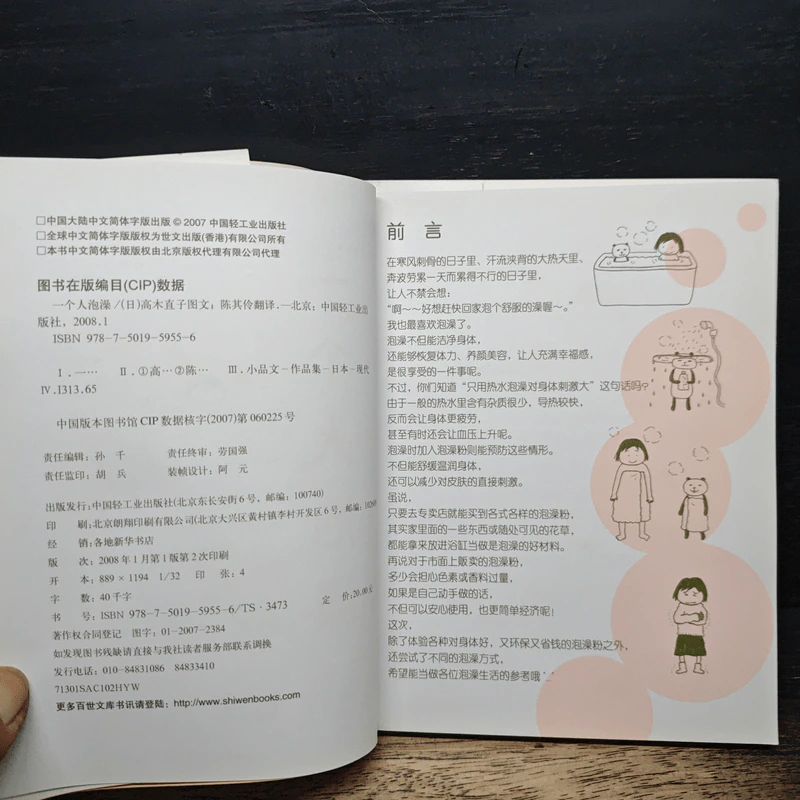 □中国大陆中文简体字版出版 © 2007 中国轻工业出版社
□全球中文简体字版版权为世文出版(香港)有限公司所有
□本书中文简体字版版权由北京版权代理有限公司代理
图书在版编目(CIP)数据
一个人泡澡/(日)高木直子图文;陈其伶翻译.—北京:中国轻工业出
版社,2008.1
ISBN 978-7-5019-5955-6
Ⅰ.一… Ⅱ.①高…②陈… Ⅲ.小品文-作品集-日本-现代
Ⅳ.I313.65
中国版本图书馆CIP数据核字(2007)第060225号
责任编辑:孙 千 责任终审:劳国强
责任监印:胡 兵 装帧设计:阿 元
出版发行:中国轻工业出版社(北京东长安街6号,邮编:100740)
印 刷:北京朗翔印刷有限公司(北京大兴区黄村镇李村开发区6号,邮编:102600)
经 销:各地新华书店
版 次:2008年1月第1版第2次印刷
开 本:889×1194 1/32 印 张:4
字 数:40千字
书 号:ISBN 978-7-5019-5955-6/TS·3473 定 价:20.00元
著作权合同登记 图字:01-2007-2384
如发现图书残缺请直接与我社读者服务部联系调换
发行电话:010-84831086 84833410
71301SAC102HYW
更多百世文库书讯请登陆:http://www.shiwenbooks.com
前 言
在寒风刺骨的日子里、汗流浃背的大热天里、
奔波劳累一天而累得不行的日子里,
让人不禁会想:
“啊~~好想赶快回家泡个舒服的澡喔~。”
我也最喜欢泡澡了。
泡澡不但能洁净身体,
还能够恢复体力、养颜美容,让人充满幸福感,
是很享受的一件事呢。
不过,你们知道“只用热水泡澡对身体刺激大”这句话吗?
由于一般的热水里含有杂质很少,导热较快,
反而会让身体更疲劳,
甚至有时还会让血压上升呢。
泡澡时加入泡澡粉则能预防这些情形。
不但能舒缓温润身体,
还可以减少对皮肤的直接刺激。
虽说,
只要去专卖店就能买到各式各样的泡澡粉,
其实家里面的一些东西或随处可见的花草,
都能拿来放进浴缸当做是泡澡的好材料。
再说对于市面上贩卖的泡澡粉,
多少会担心色素或香料过量,
如果是自己动手做的话,
不但可以安心使用,也更简单经济呢!
这次,
除了体验各种对身体好,又环保又省钱的泡澡粉之外,
还尝试了不同的泡澡方式,
希望能当做各位泡澡生活的参考哦